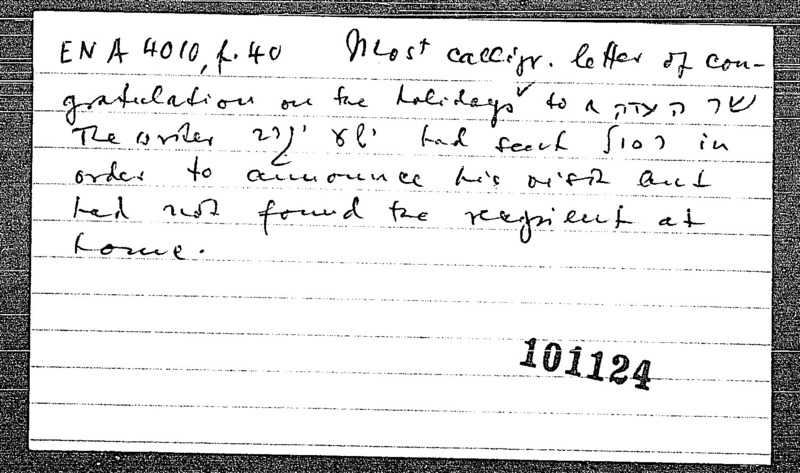 ENA 4010, f. 40 Most calligr. letter of con-
gratulation on the holidays to a שר העדה
The writer had sent רסול in
order to announce his visit but
had not found the recipient at
home.
101124